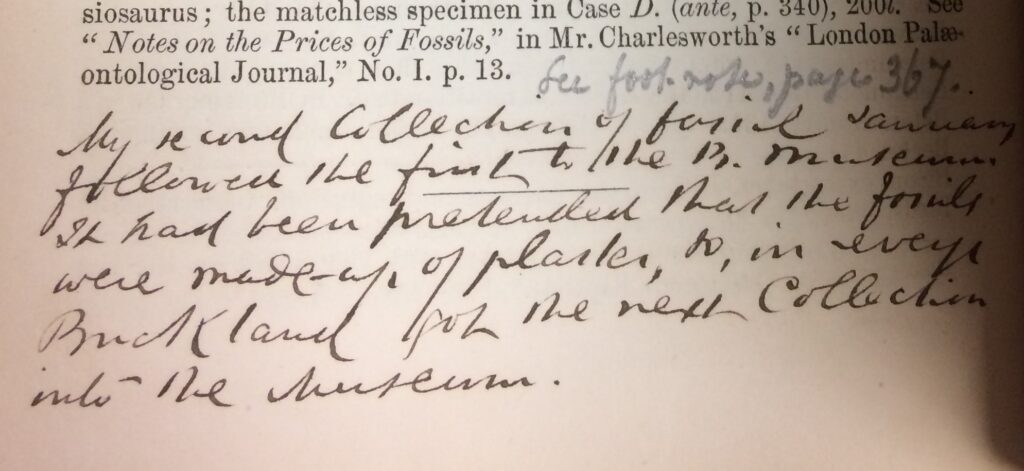 siosaurus; the matchless specimen in Case D. (ante, p. 340), 200l. See
"Notes on the Prices of Fossils," in Mr. Charlesworth's "London Palæ-
ontological Journal," No. I. p. 13. See foot-note, page 367.
My second Collection of fossil
followed the first to the B. Museum.
It had been pretended that the fossils
were made-up of plaster, so, in
Buckland got the next Collection
into the Museum.